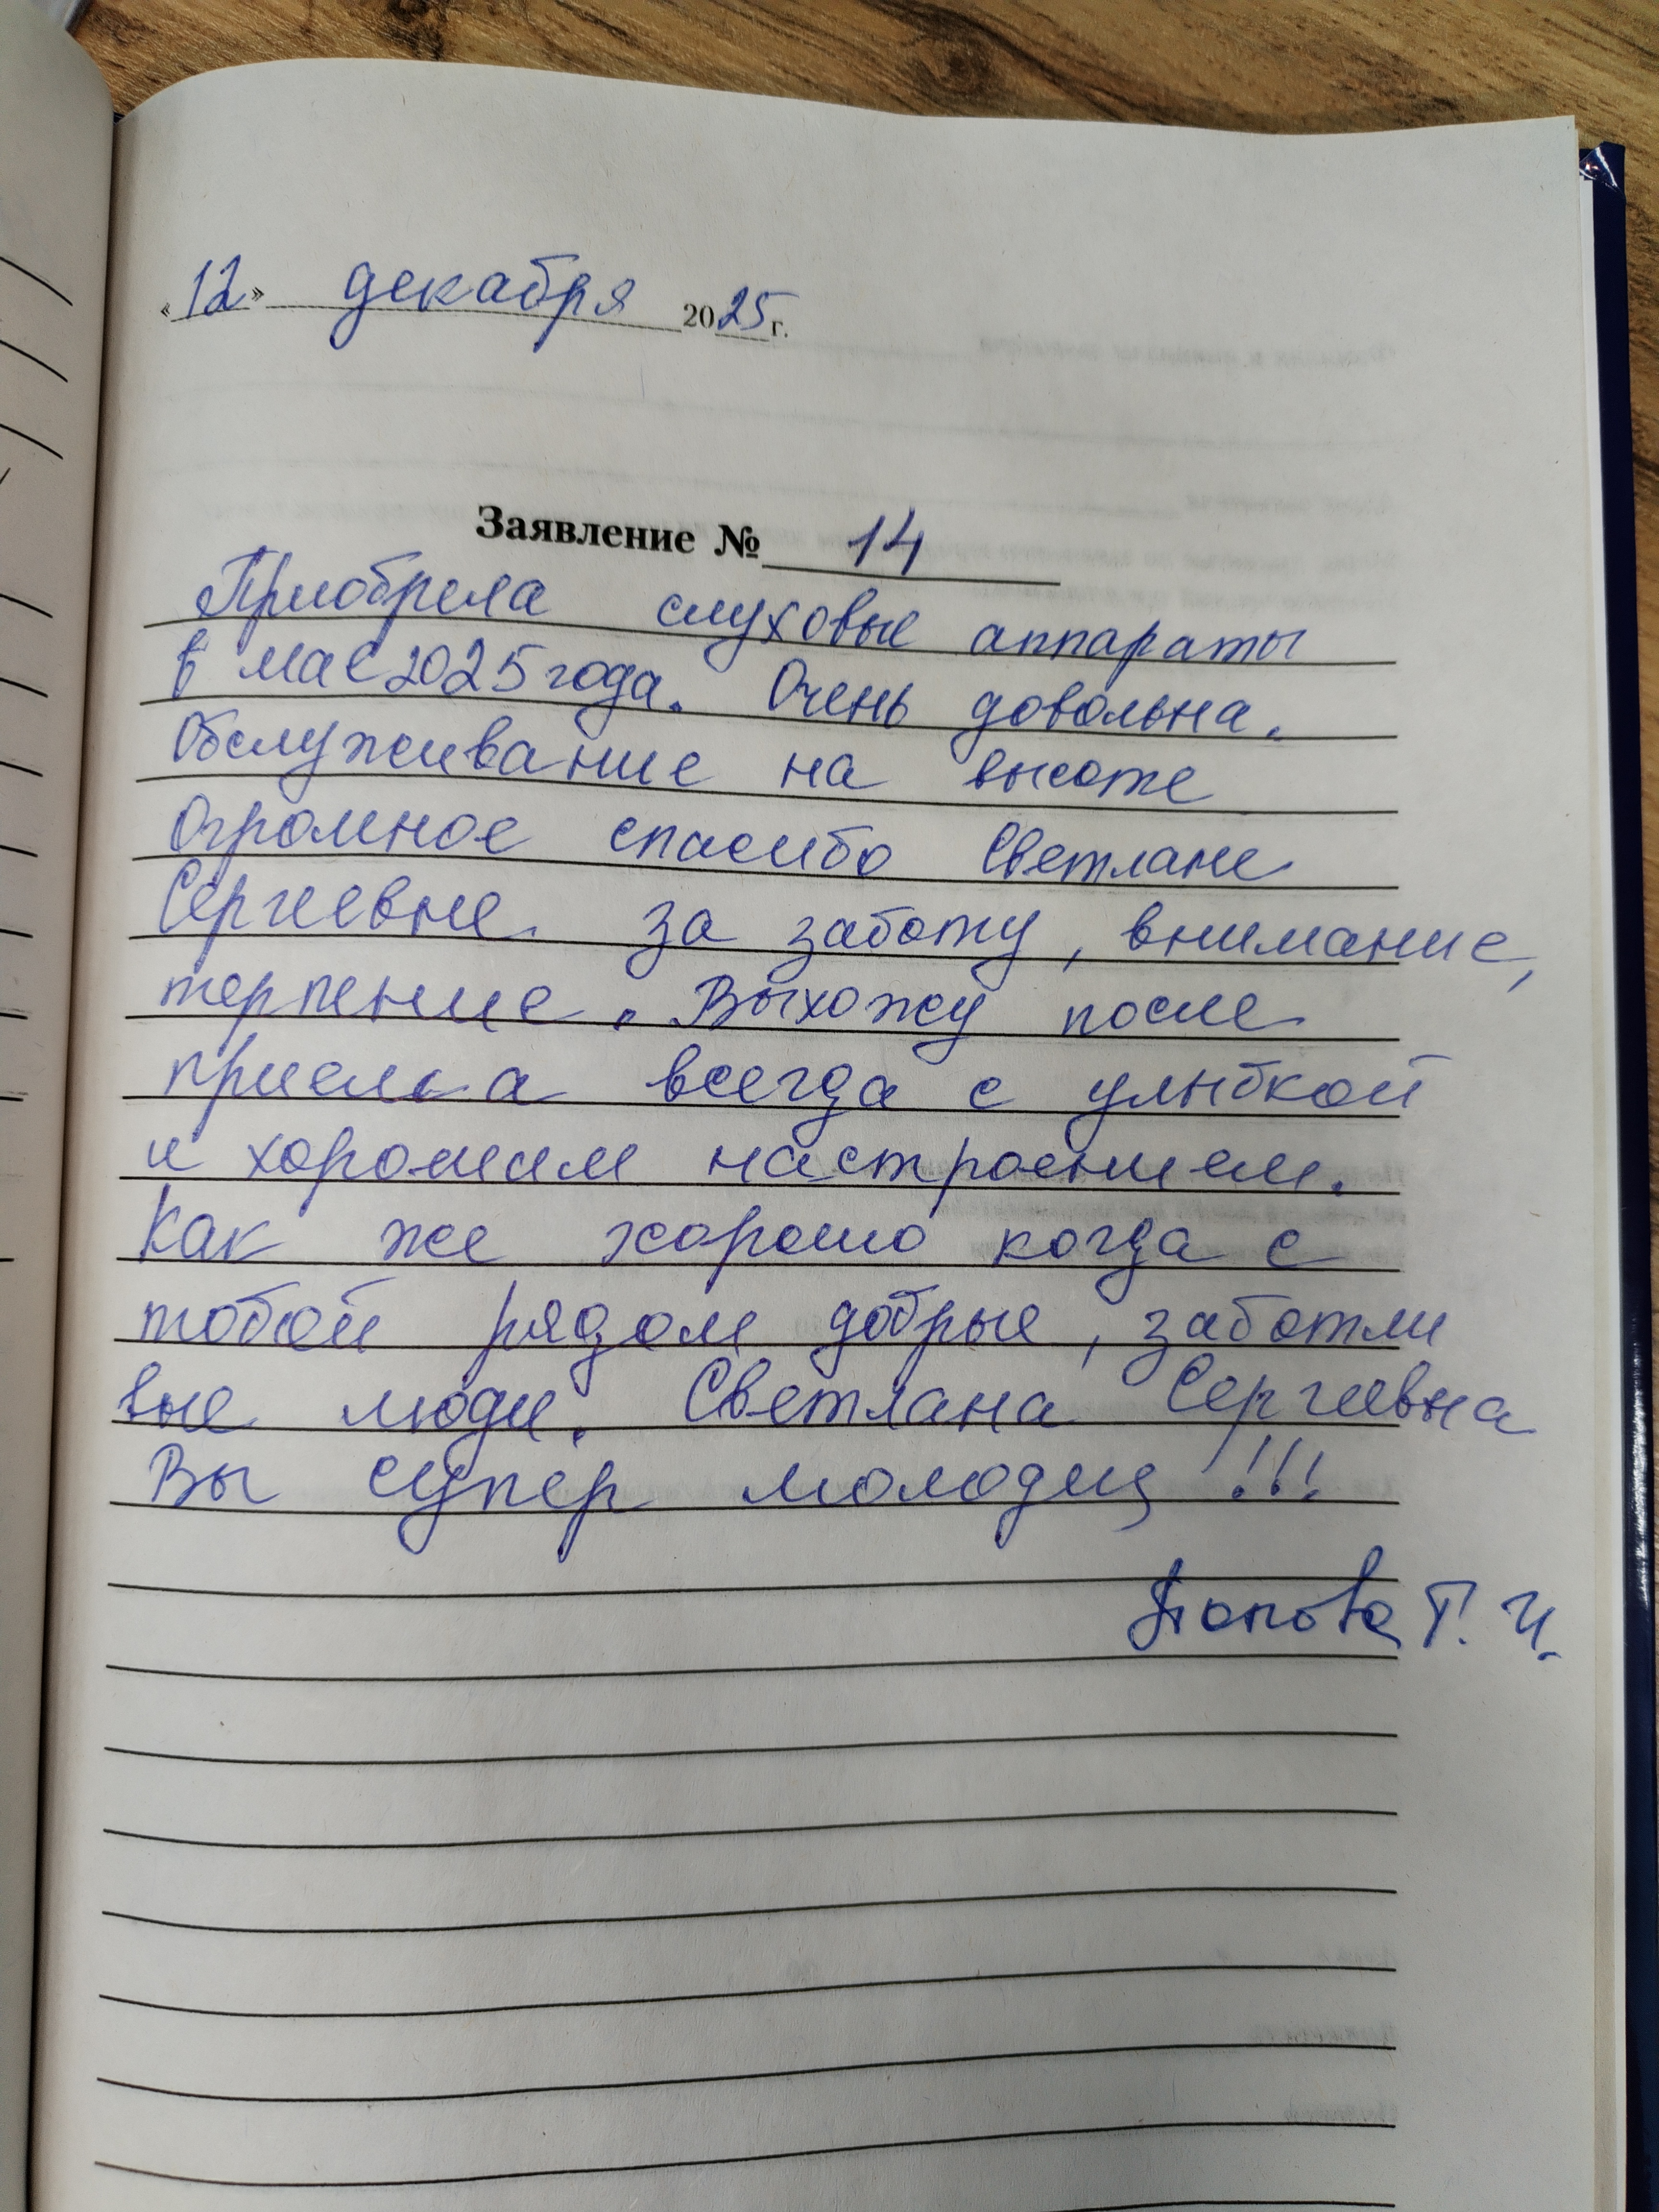 «12» декабря 2025 г.
Заявление № 14
Приобрела слуховые аппараты
в мае 2025 года. Очень довольна.
Обслуживание на высоте
Огромное спасибо Светлане
Сергеевне за заботу, внимание,
терпение. Выхожу после
приема всегда с улыбкой
и хорошим настроением.
Как же хорошо когда с
тобой рядом добрые, заботли
вые люди. Светлана Сергеевна
Вы супер молодец!!!
Попова Т. И.